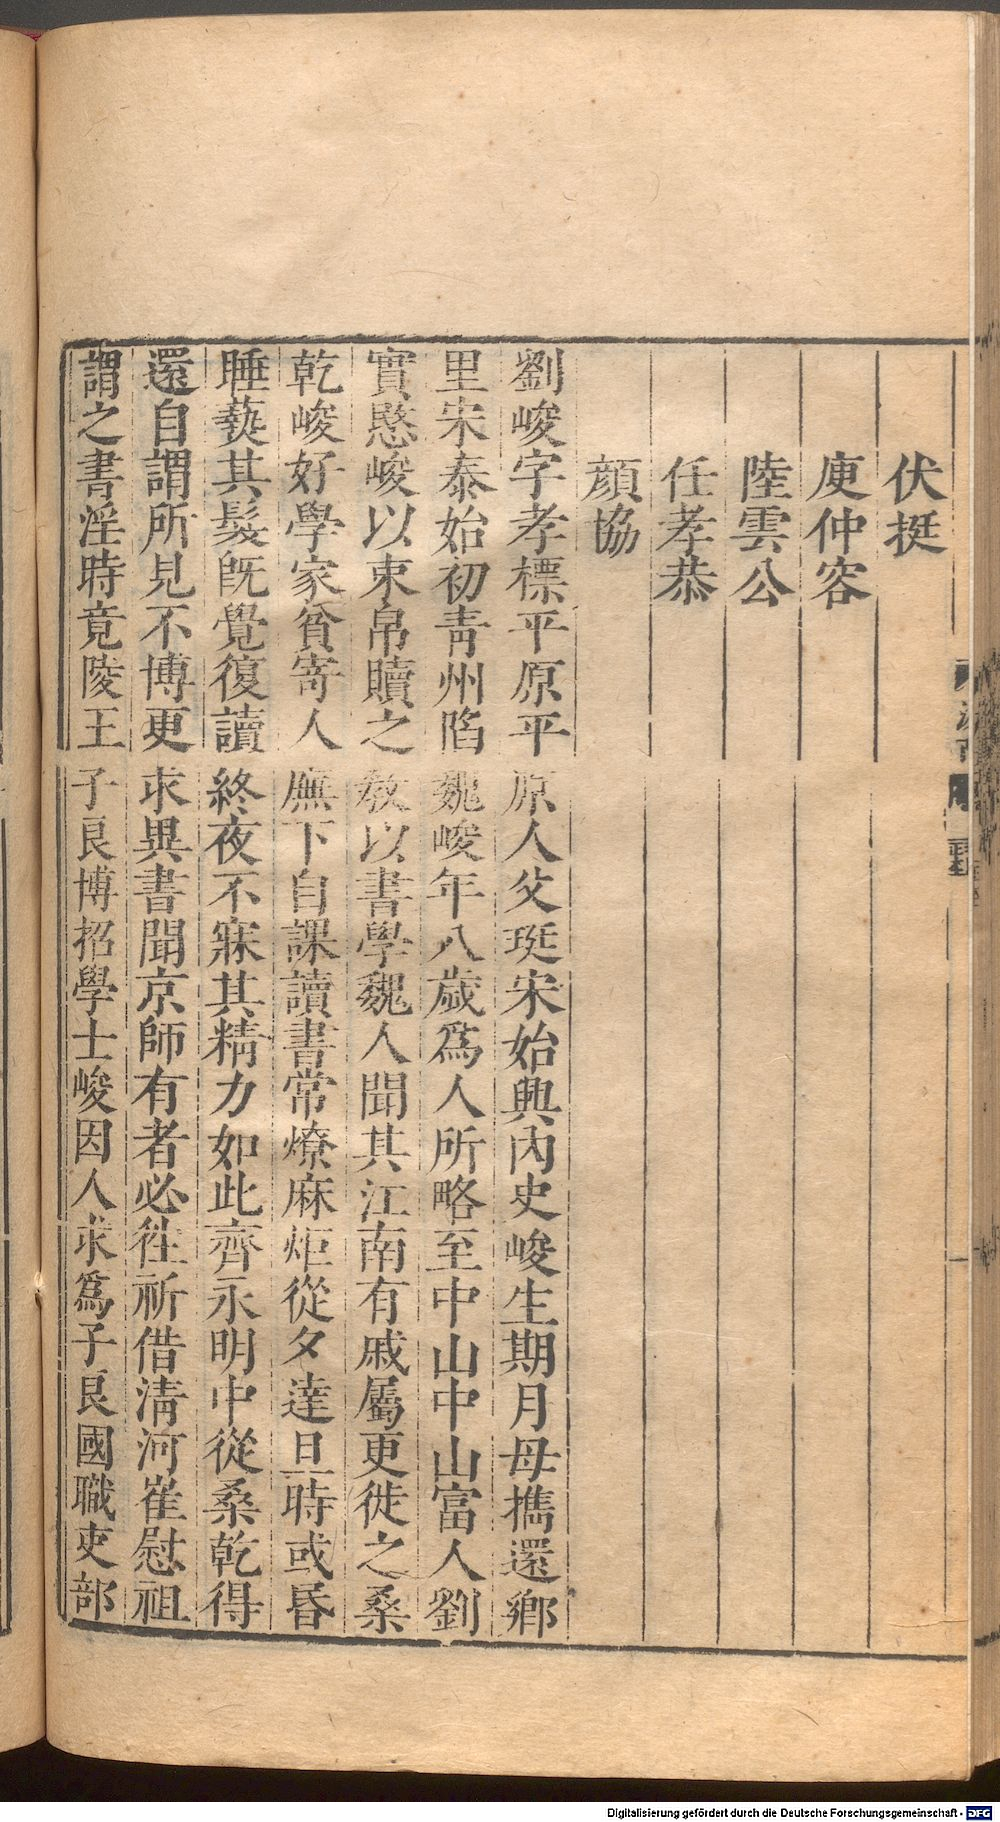 伏挺
庾仲容
陸雲公
任孝恭
顔協
劉峻字孝標平原平原人父珽宋始興內史峻生期月母攜還鄉
里宋泰始初靑州陷魏峻年八歲爲人所略至中山中山富人劉
實愍峻以束帛贖之敎以書學魏人聞其江南有戚屬更徙之桑
乾峻好學家貧寄人廡下自課讀書常燎麻炬從夕達旦時或昏
睡爇其髮旣覺復讀終夜不寐其精力如此齊永明中從桑乾得
還自謂所見不博更求異書聞京師有者必徃祈借淸河崔慰祖
謂之書淫時竟陵王子良博招學士峻因人求爲子良國職吏部
Digitalisierung gefördert durch die Deutsche Forschungsgemeinschaft - DFG